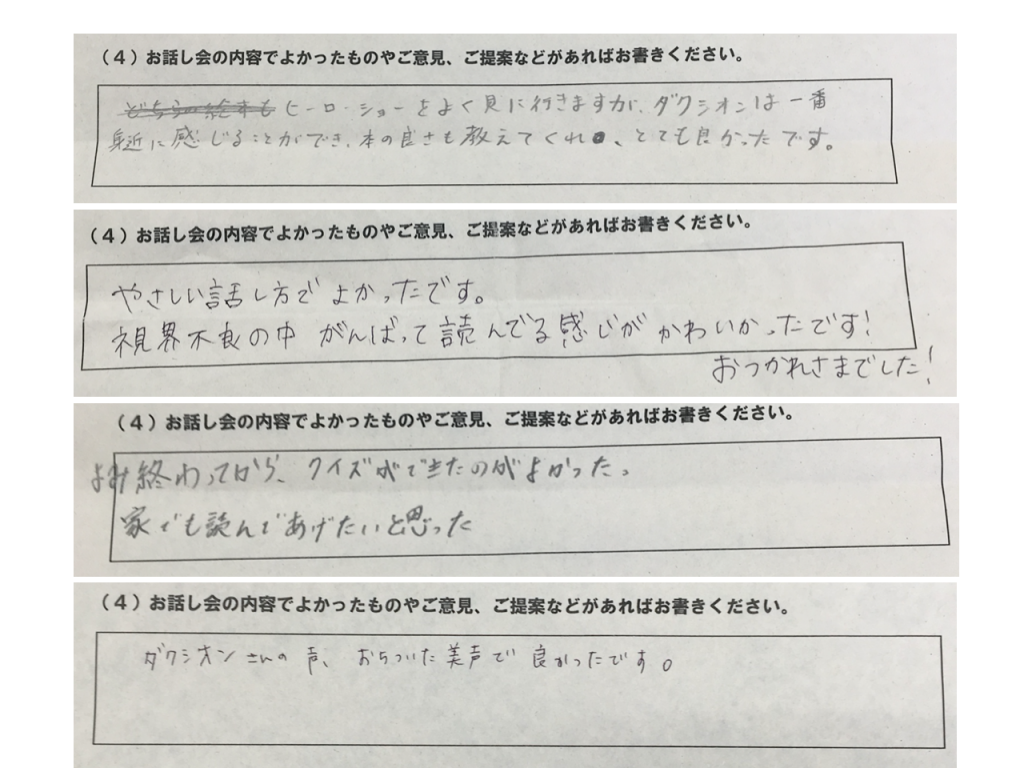 (4)お話し会の内容でよかったものやご意見、ご提案などがあればお書きください。
どちらの絵本も ヒーローショーをよく見に行きますが、ダクシオンは一番
身近に感じることができ、本の良さも教えてくれ、とても良かったです。
(4)お話し会の内容でよかったものやご意見、ご提案などがあればお書きください。
やさしい話し方でよかったです。
視界不良の中 がんばって読んでる感じがかわいかったです!
おつかれさまでした!
(4)お話し会の内容でよかったものやご意見、ご提案などがあればお書きください。
よみ終わってから、クイズができたのがよかった。
家でも読んであげたいと思った
(4)お話し会の内容でよかったものやご意見、ご提案などがあればお書きください。
ダクシオンさんの声、おちついた美声で良かったです。